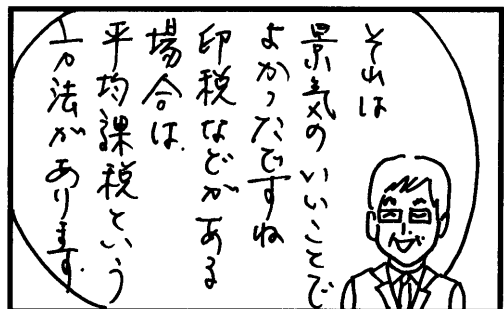 それは
景気のいいことで
よかったですね
印税などがある
場合は、
平均課税という
方法があります。